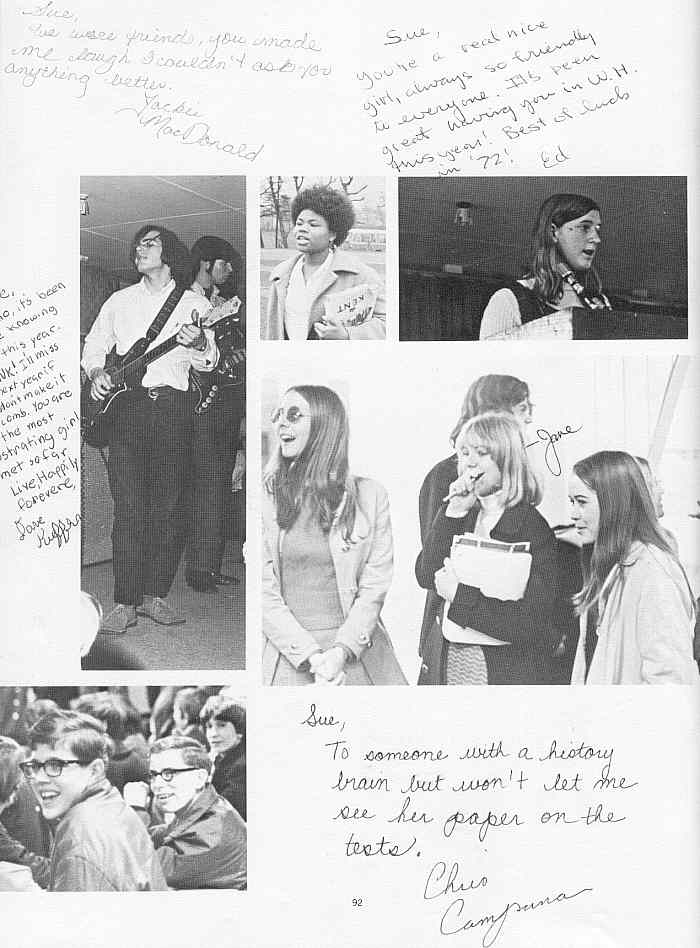 Sue,
We were friends, you made
me laugh I couldn't ask you
anything better.
Jackie
MacDonald
Sue,
You're a real nice
girl, always so friendly
to everyone. It's been
great having you in W.H.
this year! Best of luck
in '72!
Ed
it's been
knowing
this year.
I'll miss
next year if
dont make it
comb. You are
the most
girl
met so far
Live, Happily
forevere,
Dave
KENT
Jane
Sue,
To someone with a history
brain but won't let me
see her paper on the
tests.
Chris
Campana
92